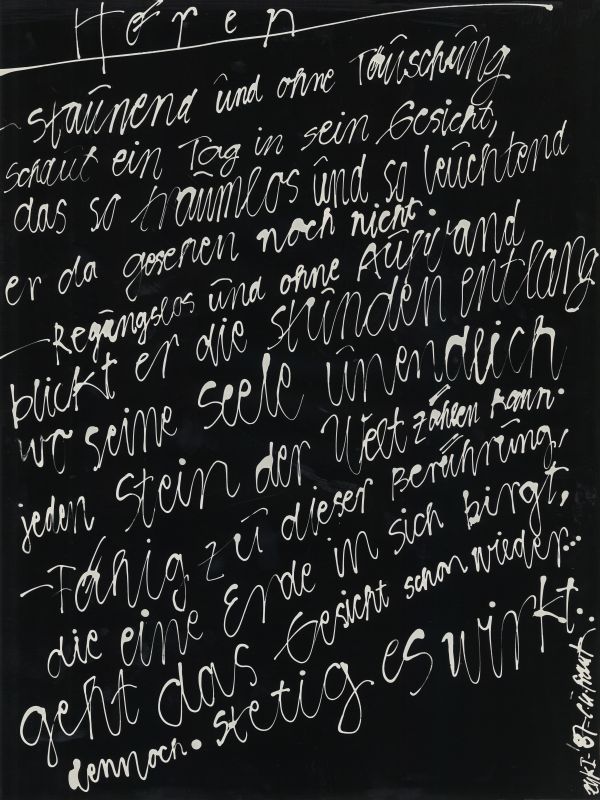 Hören
- Staunend und ohne Täuschung
schaut ein Tag in sein Gesicht,
das so traumlos und so leuchtend
er da gesehen noch nicht.
- Regungslos und ohne Aufwand
blickt er die Stunden entlang
wo seine Seele unendlich
jeden Stein der Welt zählen kann.
- Fähig zu dieser Berührung,
die eine Erde in sich birgt,
geht das Gesicht schon wieder..
dennoch. Stetig es wirkt.